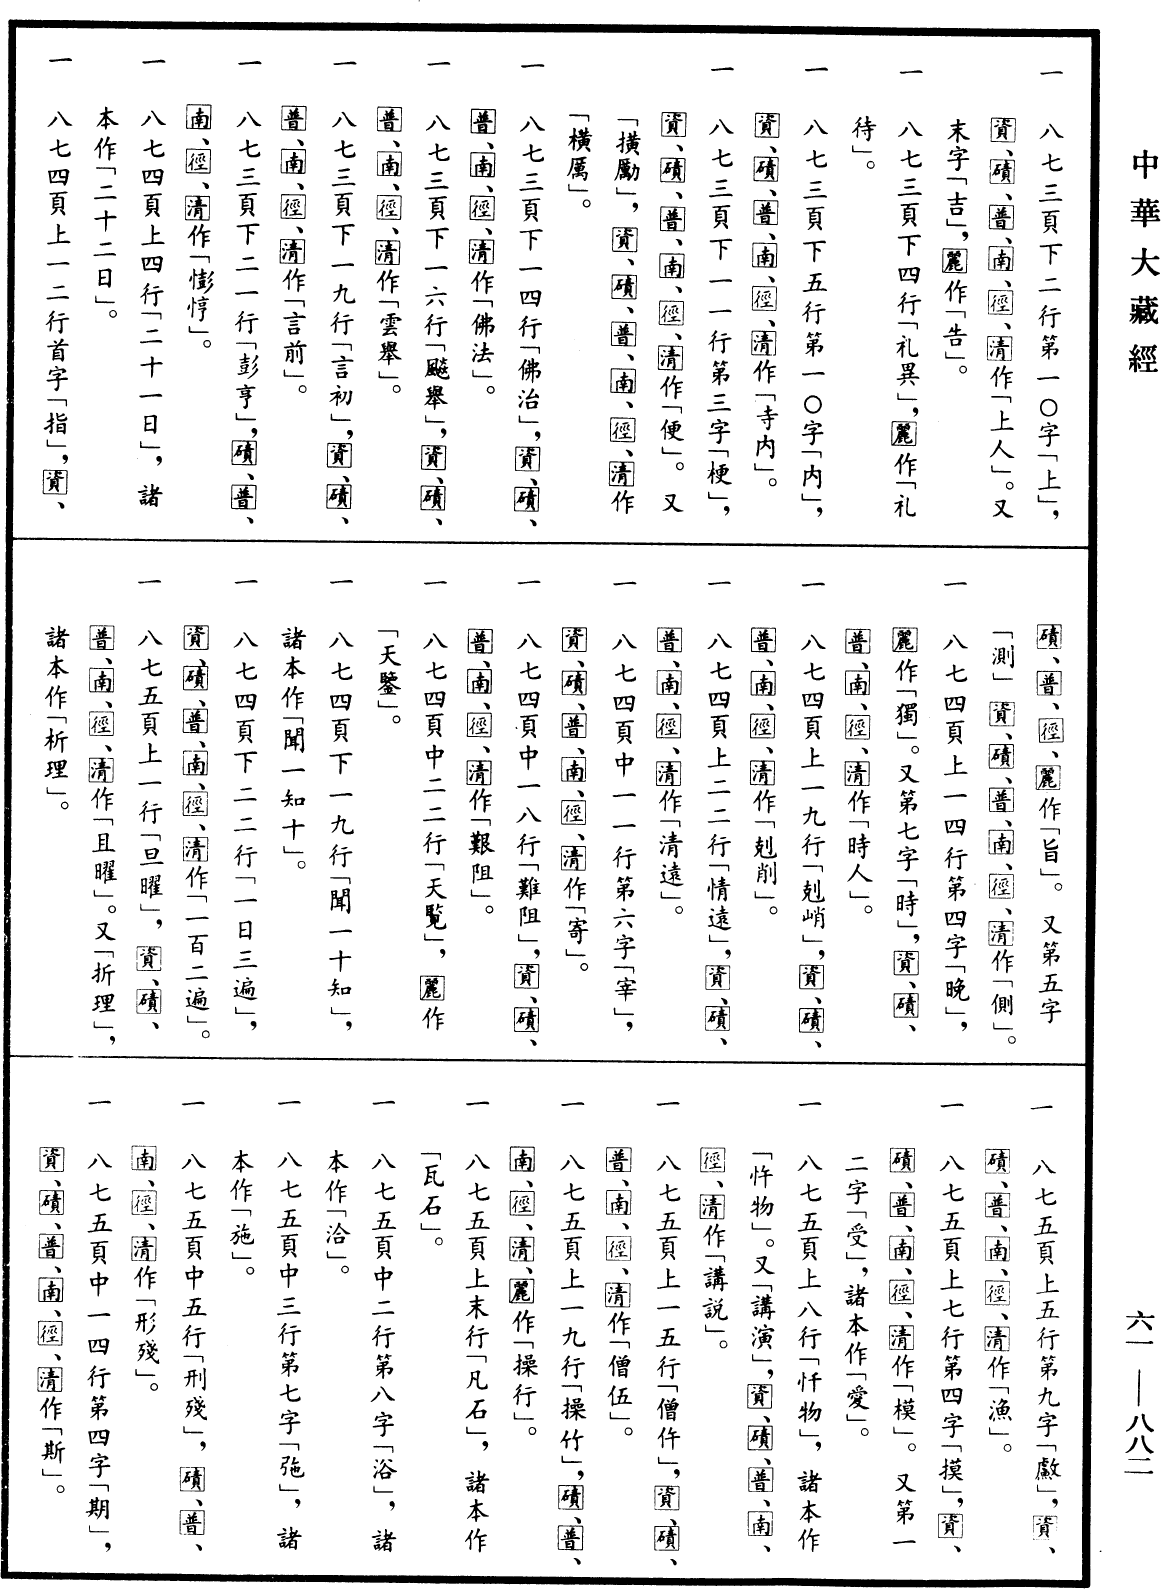 中華大藏經
一　八七三頁下二行第一〇字「上」，
資、磧、普、南、徑、清作「上人」。又
末字「吉」，麗作「告」。
一　八七三頁下四行「礼異」，麗作「礼
待」。
一　八七三頁下五行第一〇字「内」，
資、磧、普、南、徑、清作「寺内」。
一　八七三頁下一一行第三字「梗」，
資、磧、普、南、徑、清作「便」。又
「擴勵」，資、磧、普、南、徑、清作
「橫厲」。
一　八七三頁下一四行「佛治」，資、磧、
普、南、徑、清作「佛法」。
一　八七三頁下一六行「飈舉」，資、磧、
普、南、徑、清作「雲舉」。
一　八七三頁下一九行「言初」，資、磧、
普、南、徑、清作「言前」。
一　八七三頁下二一行「彭亨」，磧、普、
南、徑、清作「憉悙」。
一　八七四頁上四行「二十一日」，諸
本作「二十二日」。
一　八七四頁上一二行首字「指」，資、
磧、普、徑、麗作「旨」。又第五字
「測」資、磧、普、南、徑、清作「側」。
一　八七四頁上一四行第四字「晚」，
麗作「獨」。又第七字「時」，資、磧、
普、南、徑、清作「時人」。
一　八七四頁上一九行「剋峭」，資、磧、
普、南、徑、清作「剋削」。
一　八七四頁上二二行「情遠」，資、磧、
普、南、徑、清作「清遠」。
一　八七四頁中一一行第六字「宰」，
資、磧、普、南、徑、清作「寄」。
一　八七四頁中一八行「難阻」，資、磧、
普、南、徑、清作「艱阻」。
一　八七四頁中二二行「天覧」，麗作
「天鑒」。
一　八七四頁下一九行「聞一十知」，
諸本作「聞一知十」。
一　八七四頁下二二行「一日三遍」，
資、磧、普、南、徑、清作「一百二遍」。
一　八七五頁上一行「旦曜」，資、磧、
普、南、徑、清作「且曜」。又「折理」，
諸本作「析理」。
一　八七五頁上五行第九字「䱷」，資、
磧、普、南、徑、清作「漁」。
一　八七五頁上七行第四字「摸」，資、
磧、普、南、徑、清作「模」。又第一
二字「受」，諸本作「愛」。
一　八七五頁上八行「忏物」，諸本作
「忤物」。又「講演」，資、磧、普、南、
徑、清作「講説」。
一　八七五頁上一五行「僧仵」，資、磧、
普、南、徑、清作「僧伍」。
一　八七五頁上一九行「操竹」，磧、普、
南、徑、清、麗作「操行」。
一　八七五頁上末行「凡石」，諸本作
「瓦石」。
一　八七五頁中二行第八字「浴」，諸
本作「洽」。
一　八七五頁中三行第七字「㢮」，諸
本作「施」。
一　八七五頁中五行「刑殘」，磧、普、
南、徑、清作「形殘」。
一　八七五頁中一四行第四字「期」，
資、磧、普、南、徑、清作「斯」。
六一——八八二